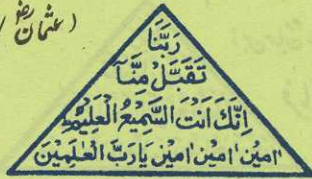 (عثمان رض)
رَبَّنَا
تَقَبَّلْ مِنَّا
اِنَّكَ اَنْتَ السَّمِيْعُ الْعَلِيْمُ
اٰمِيْن اٰمِيْن اٰمِيْن يَا رَبَّ الْعٰلَمِيْنَ